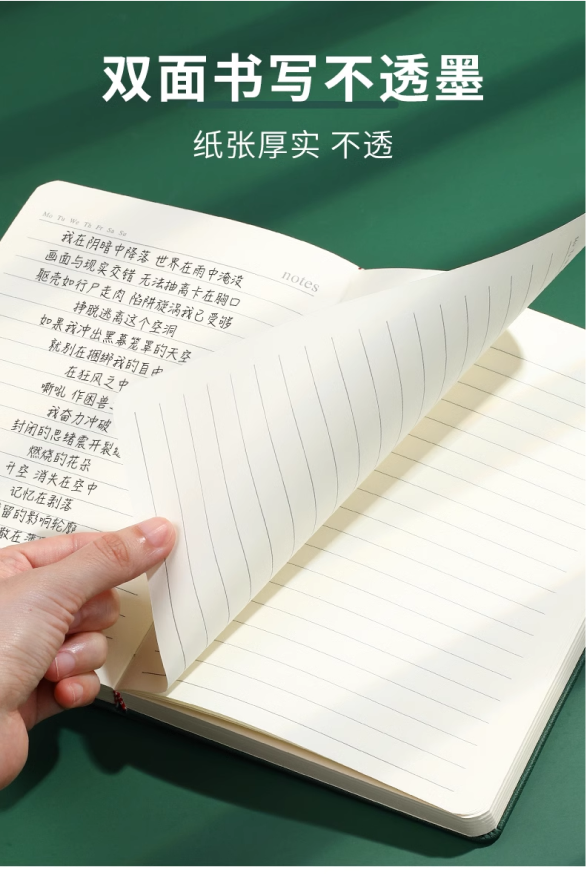 双面书写不透墨
纸张厚实 不透
Mo Tu We Th Fr Sa Su
notes
我在阴暗中降落 世界在雨中淹没
画面与现实交错 无法抽离卡在胸口
躯壳如行尸走肉 陷阱旋涡我已受够
挣脱逃离这个空洞
如果我冲出黑幕笼罩的天空
就别在捆绑我的自由
在狂风之中
嘶吼 作困兽
我奋力冲破
封闭的思绪震开裂
燃烧的花朵
升空 消失在空中
记忆在剥落
留的影响轮廓
散在